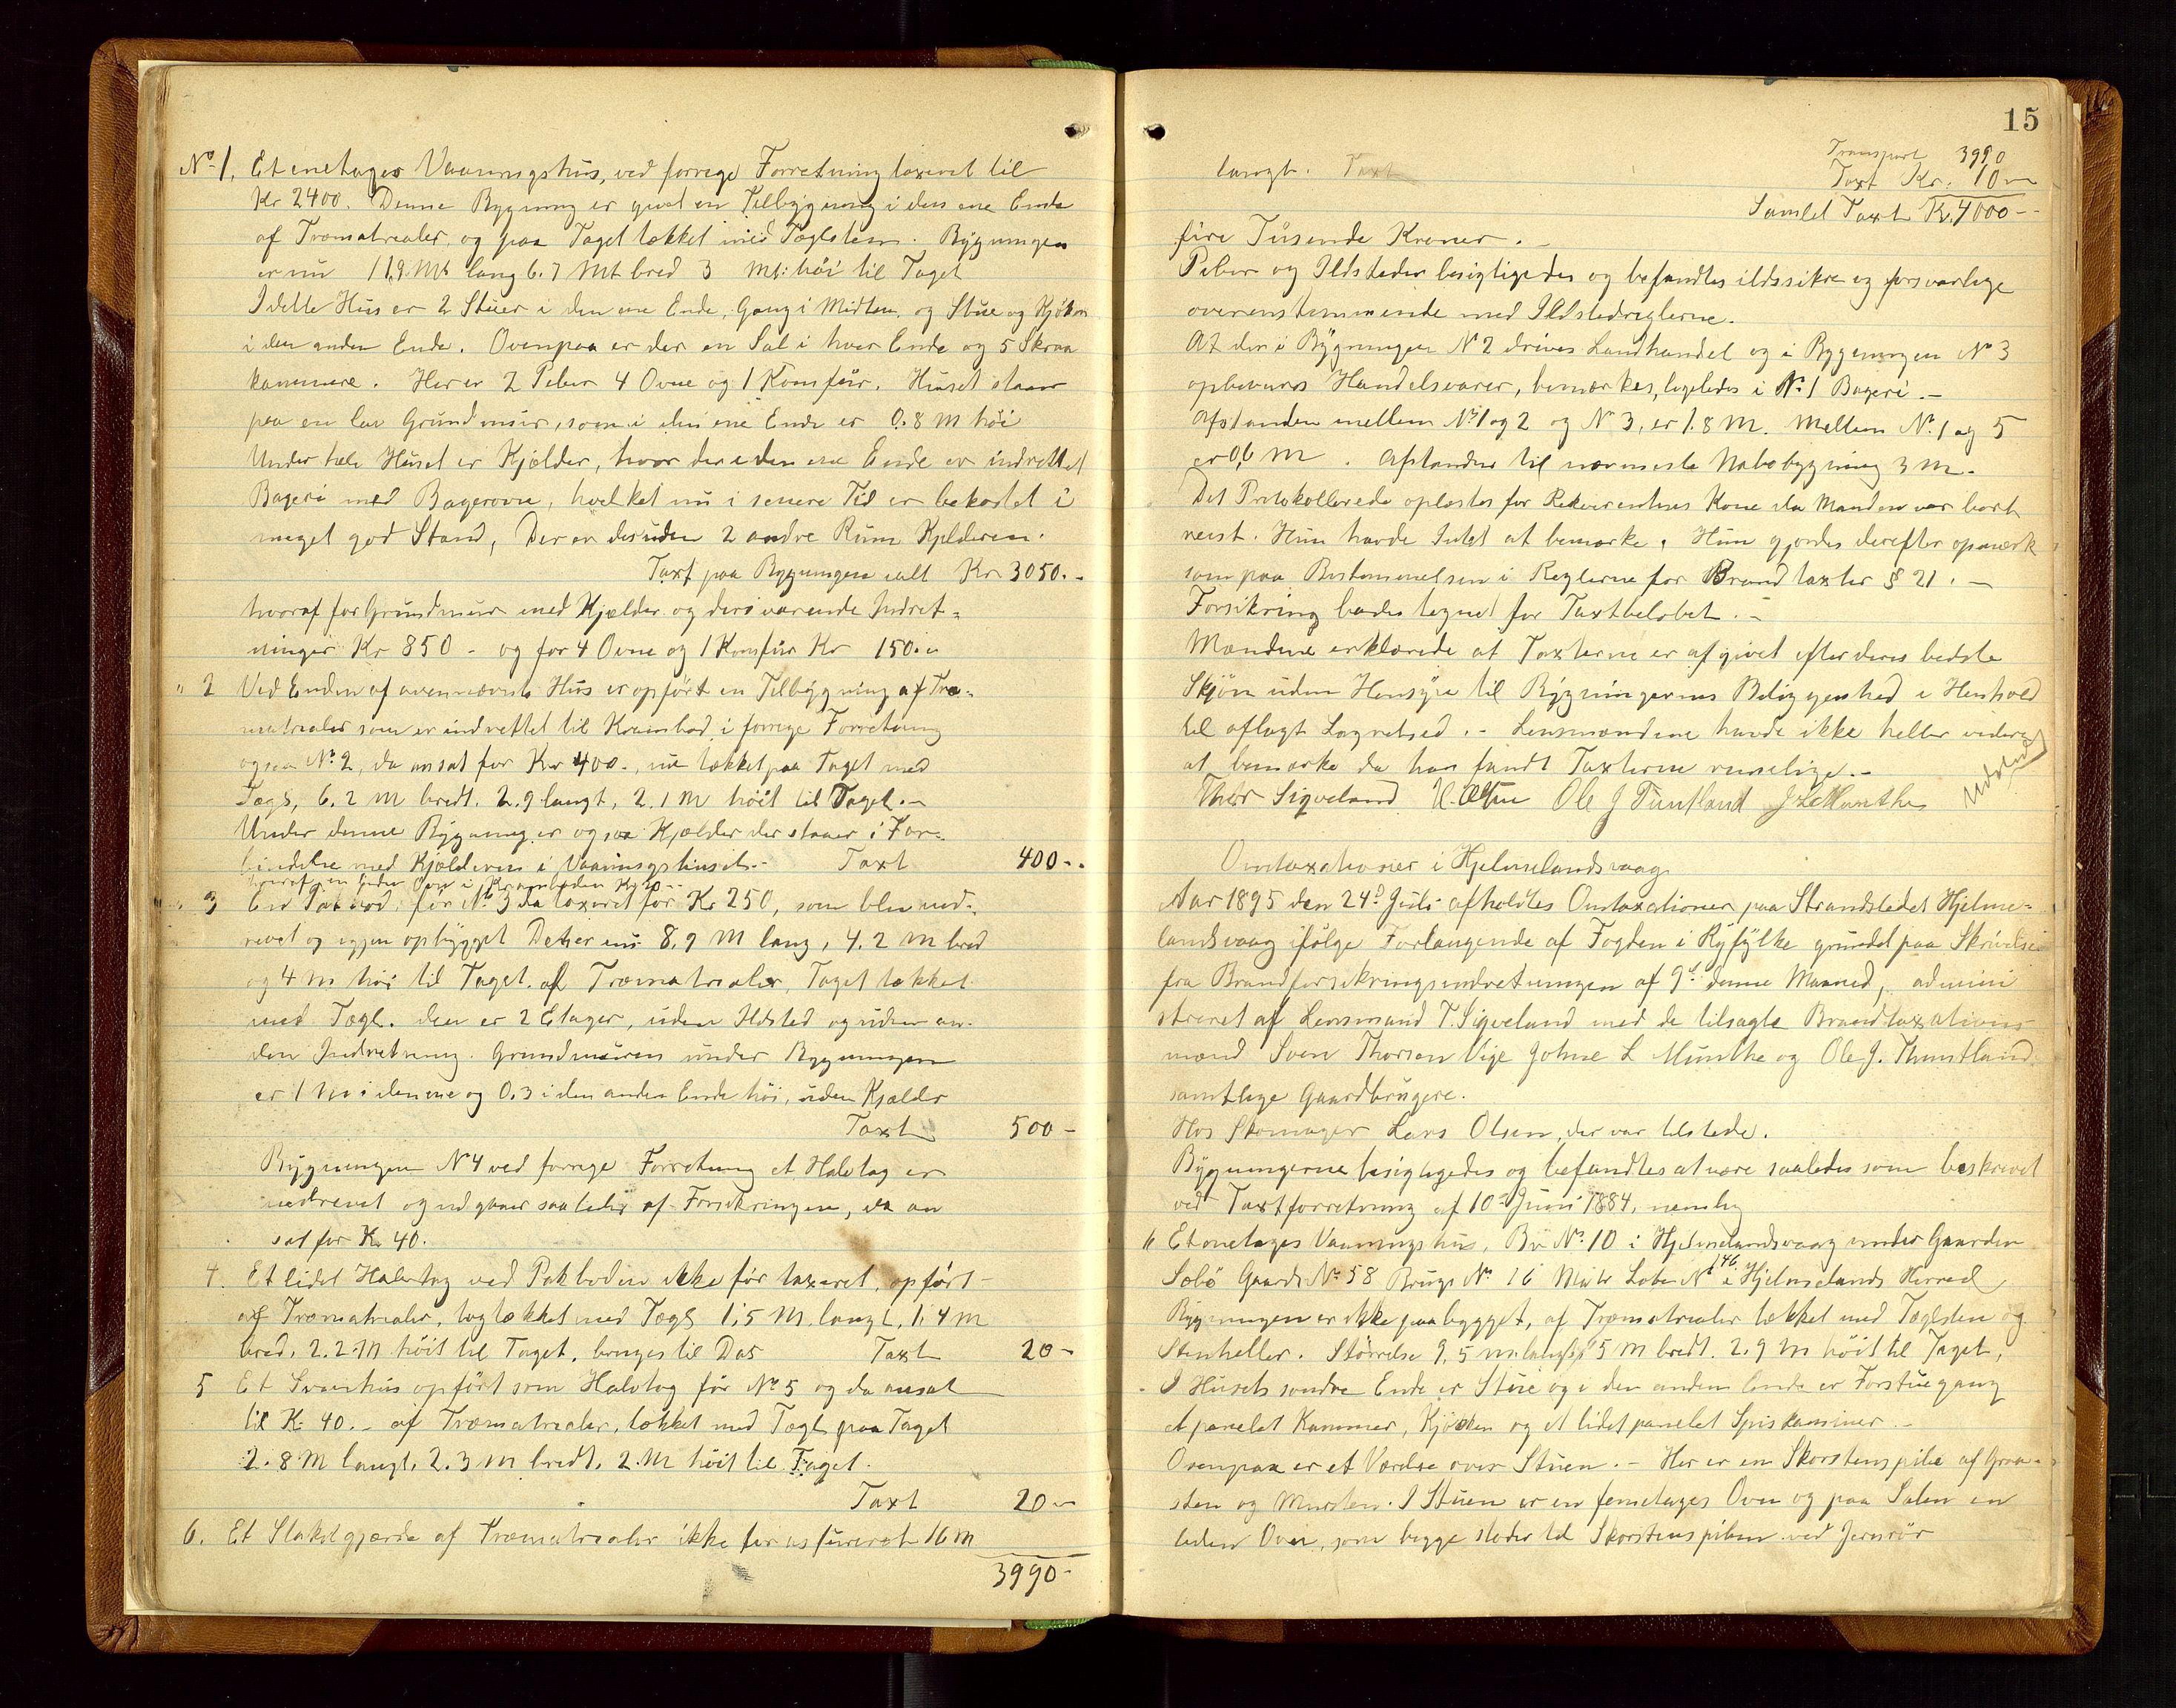 No 1. Et enetages Vaaningshus, ved forrige Forretning taxeret til
Kr 2400. Denne Bygning er gjort en Tilbygning i den ene Ende
af Træmatrealer, og paa Taget tækket med Taglsten. Bygningen
er nu 11,9 Mt lang 6.7 Mt bred 3 Mt: høi til Taget
I dette Hus er 2 Stuer i den ene Ende, Gang i Midten, og Stue og Kjøken
i den anden Ende. Ovenpaa er der en Sal i hver Ende og 5 Skraa
kammere. Her er 2 Piber 4 Ovne og 1 Komfur. Huset staar
paa en lav Grundmur, som i den ene Ende er 0.8 M høi
Under hele Huset er Kjælder, hvor der i den ene Ende er indrettet
Bageri med Bagerovn, hvilket nu i senere Tid er bekostet i
meget god Stand, Der er desuden 2 andre Rum Kjelderen.
Taxt paa Bygningen ialt Kr 3050.-
hvoraf for Grundmur med Kjælder og deri varende Indret-
ninger Kr 850 - og for 4 Ovne og 1 Komfur Kr 150.-
" 2 Ved Enden af ovennævnte Hus er opført en Tilbygning af Træ-
matrealer som er indrettet til Krambod, i forrige Forretning
ogsaa No 2, da ansat for Kr 400., nu tækket paa Taget med
Tægl, 6.2 M bredt. 2.9 langt, 2.1 M høit til Taget.-
Under denne Bygning er ogsaa Kjælder der staaer i For-
bindelse med Kjælderen i Vaaningshuset.- Taxt 400-.
hvoraf en liden Ovn i Kramboden Kr 20--
" 3 En Pakbod, før No 3 da taxeret for Kr 250, som blev ned-
revet og igjen opbygget Det er nu 8.9 M lang, 4.2 M bred
og 4 M høi til Taget. af Træmatrealer, Taget tækket
med Tægl. den er 2 Etager, uden Ildsted og uden an-
den Indretning. Grundmuren under Bygningen
er 1 M i den ene og 0.3 i den anden Ende høi, uden Kjælder
Taxt 500-
Bygningen N 4 ved forrige Forretning et Halvtag er
nedrevet og udgaaer saaledes af Forsikringen, da an
sat for Kr 40.
4. Et lidet Halvtag ved Pakboden ikke før taxeret, opført
af Træmatrealer, tagtækket med Tægl 1,5 M. langt, 1,4 M
bred, 2.2 M høit til Taget, bruges til Das Taxt 20-
5 Et Svanhus opført som Halvtag før No 5 og da ansat
til K. 40.- af Træmatrealer, tækket med Tægl paa Taget
2.8 M langt. 2.3 M bredt. 2 M høit til Taget.
Taxt 20--
6. Et Stakitgjærde af Træmatrealer ikke før assureret 16 M
3990-
15
Transport 3990
langt. Taxt Taxt Kr. 10--
Samlet Taxt Kr. 4000--
fire Tusende Kroner.-
Piber og Ildsteder besigtigedes og befandtes ildssikre og forsvarlige
overenstemmende med Ildstedreglerne.
At der i Bygningen N 2 drives Landhandel og i Bygningen No 3
opbevares Handelsvarer, bemærkes, ligeledes i No 1 Bageri.-
Afstanden mellem No 1 og 2 og N 3, er 1.8 M. Mellem No 1 og 5
er 0,6 M. Afstanden til nærmeste Nabobygning 3 M.
Det Protokollerede oplæstes for Rekvirentens Kone da Manden var bort
reist. Hun havde Intet at bemærke. Hun gjordes derefter opmærk
som paa Bestemmelsen i Reglerne for Brandtaxter § 21.-
Forsikring bades tegnet for Taxtbeløbet.-
Mændene erklærede at Taxterne er afgivet efter deres bedste
Skjøn uden Hensyn til Bygningernes Beliggenhed i Henhold
til aflagt Lagretsed.- Lensmandene havde ikke heller videre
at bemærke da han fandt Taxterne rimelige.-
Thor Sigveland Ole J Tuntland J L Munthe
Udstedt
Omtaxationer i Hjelmelandsvaag
Aar 1895 den 24d Juli afholdtes Omtaxationer paa Strandstedet Hjelme-
landsvaag ifølge Forlangende af Fogden i Ryfylke grundet paa Skrivelse
fra Brandforsikringsindretningen af 9d denne Maaned, admini
streret af Lensmand T. Sigveland med de tilsagte Brandtaxations
mænd Sven Thorsen Vige Johne L Munthe og Ole J. Thuntland
samtlige Gaardbrugere.
Hos Skomager Lars Olsen, der var tilstede.
Bygningerne besigtigedes og befandtes at være saaledes som beskrevet
ved Taxtforretning af 10d Juni 1884, nemlig
" Et enetages Vaaningshus, Br No 10 i Hjelmelandsvaag under Gaarden
Sæbø Gaards No 58 Brugs No 16 Matr Løbe No 146 i Hjelmelands Herred
Bygningen er ikke paabygget, af Træmatrealer tækket med Taglsten og
Stenheller. Størrelse 9,5 m langt 5 M bredt. 2.9 M høit til Taget,
I Husets søndre Ende er Stue og i den anden Ende er Forstuegang
et panelet Kammer, Kjøken og et lidet panelet Spiskammer.-
Ovenpaa er et Værelse over Stuen.- Her er en Skorstenspibe af Graa-
sten og Mursten. I Stuen er en femetages Ovn og paa Salen en
liden Ovn, som begge støder til Skorstenspiben ved Jernrør